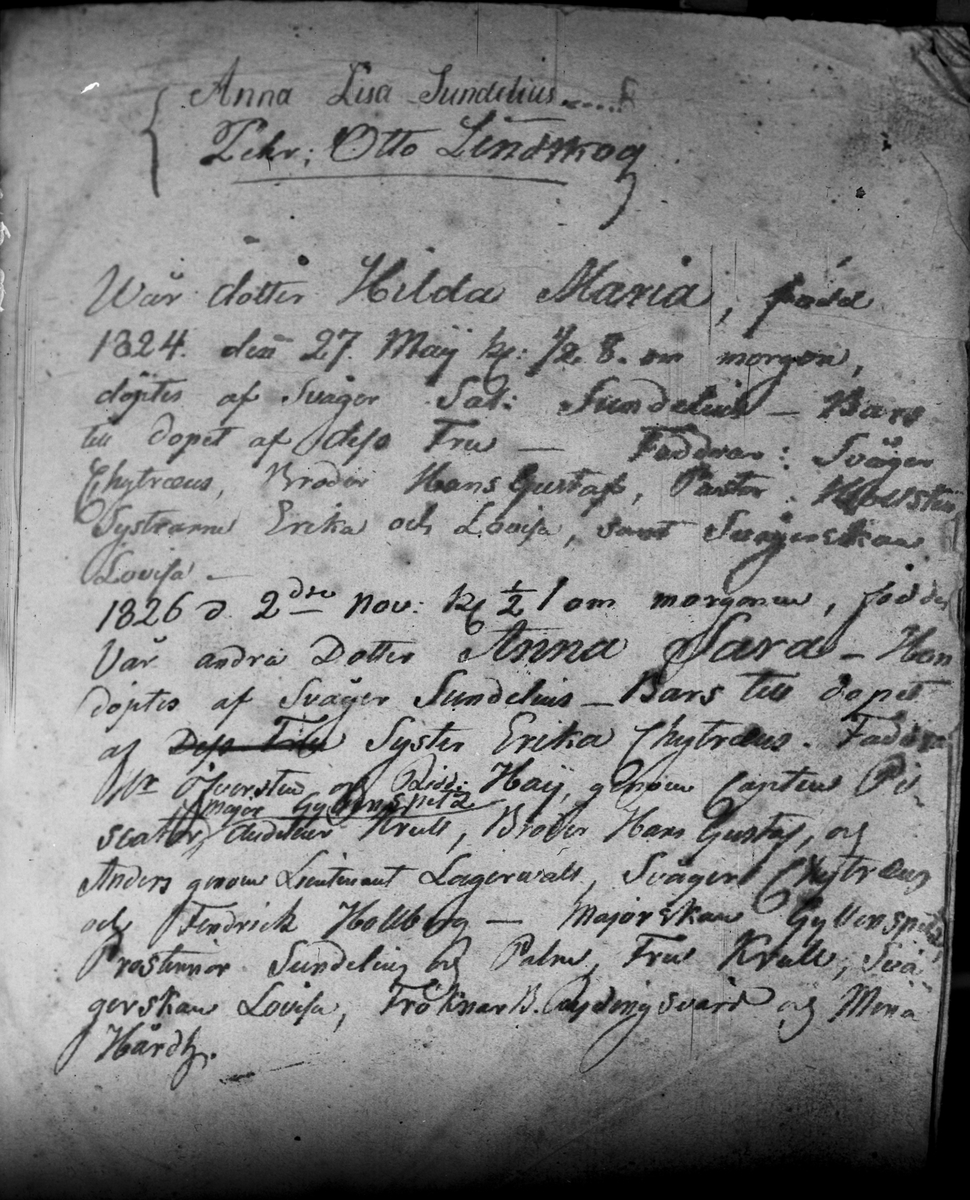 Anna Lisa Sundelius
Pehr: Otto Lindskog
Wår dotter Hilda Maria, född
1824. den 27. Maÿ kl: 1/2 8. om morgon,
döptes af Svåger Sal: Sundelius – Bars
till dopet af dess Fru — Faddrar: Svåger
Chytræus, Broder Hans Gustaf, Pastor
Systrarne Erika och Lovisa, samt Svägerskan
Lovisa –
1826 d. 2dre Nov: kl ½ 1 om morgonen, föddes
Vår andra Dotter Anna Sara – Hon
döptes af Svåger Sundelius – Bars till dopet
af Dess Fru Syster Erika Chytræus. Faddrar
Hr Öfversten och Ridd: Haij, genom Capten Pi-
Major Gyllenspetz
scator, Auditeur Krull, Broder Hans Gustaf, och
Anders genom Lieutenant Lagerwall, Svåger Chytræus
och Fendrick Hollberg — Majorskan Gyllenspetz,
Prostinnor Sundelius och Palm, Fru Krull, Svä-
gerskan Lovisa, Fröknar B. Rydingsvärd och Mina
Hårdh.